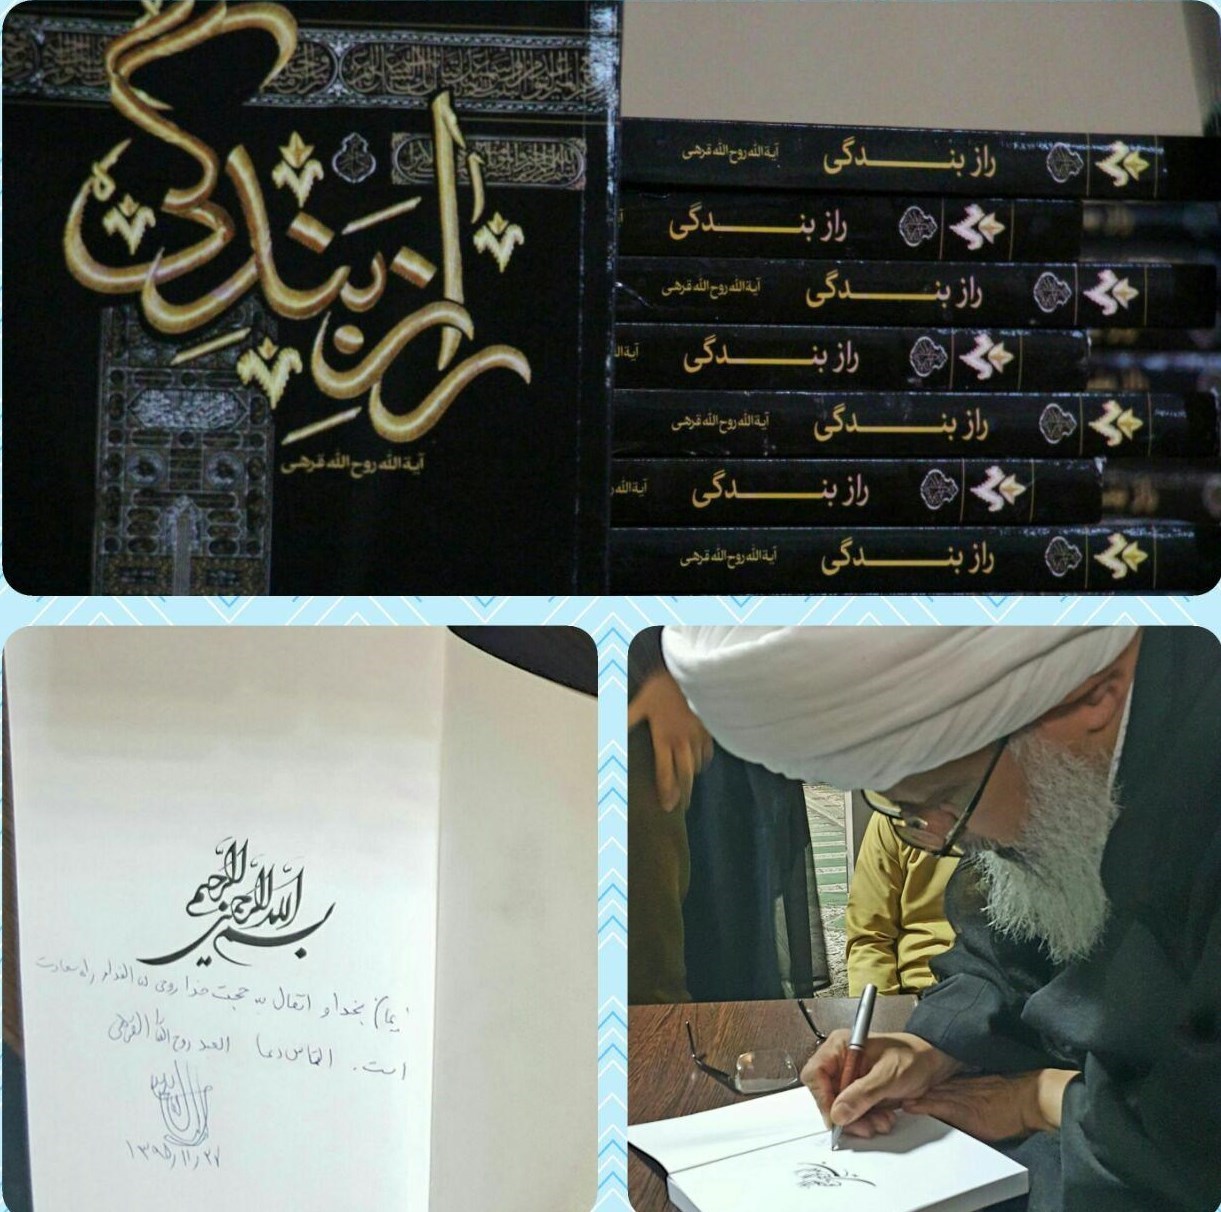 راز بندگی
آیة‌الله روح‌الله قرهی
راز بندگی
آیة‌الله روح‌الله قرهی
راز بندگی
راز بندگی
آیة‌الله روح‌الله قرهی
راز بندگی
راز بندگی
آیة‌الله روح‌الله قرهی
راز بندگی
راز بندگی
آیة‌الله روح‌الله قرهی
بسم الله الرحمن الرحیم
ایمان بخدا و اتصال به حجت خدا روحی له الفداء راه سعادت
است. التماس دعا العبد روح الله القرهی
۱۳۹۵/۱۱/۲۷